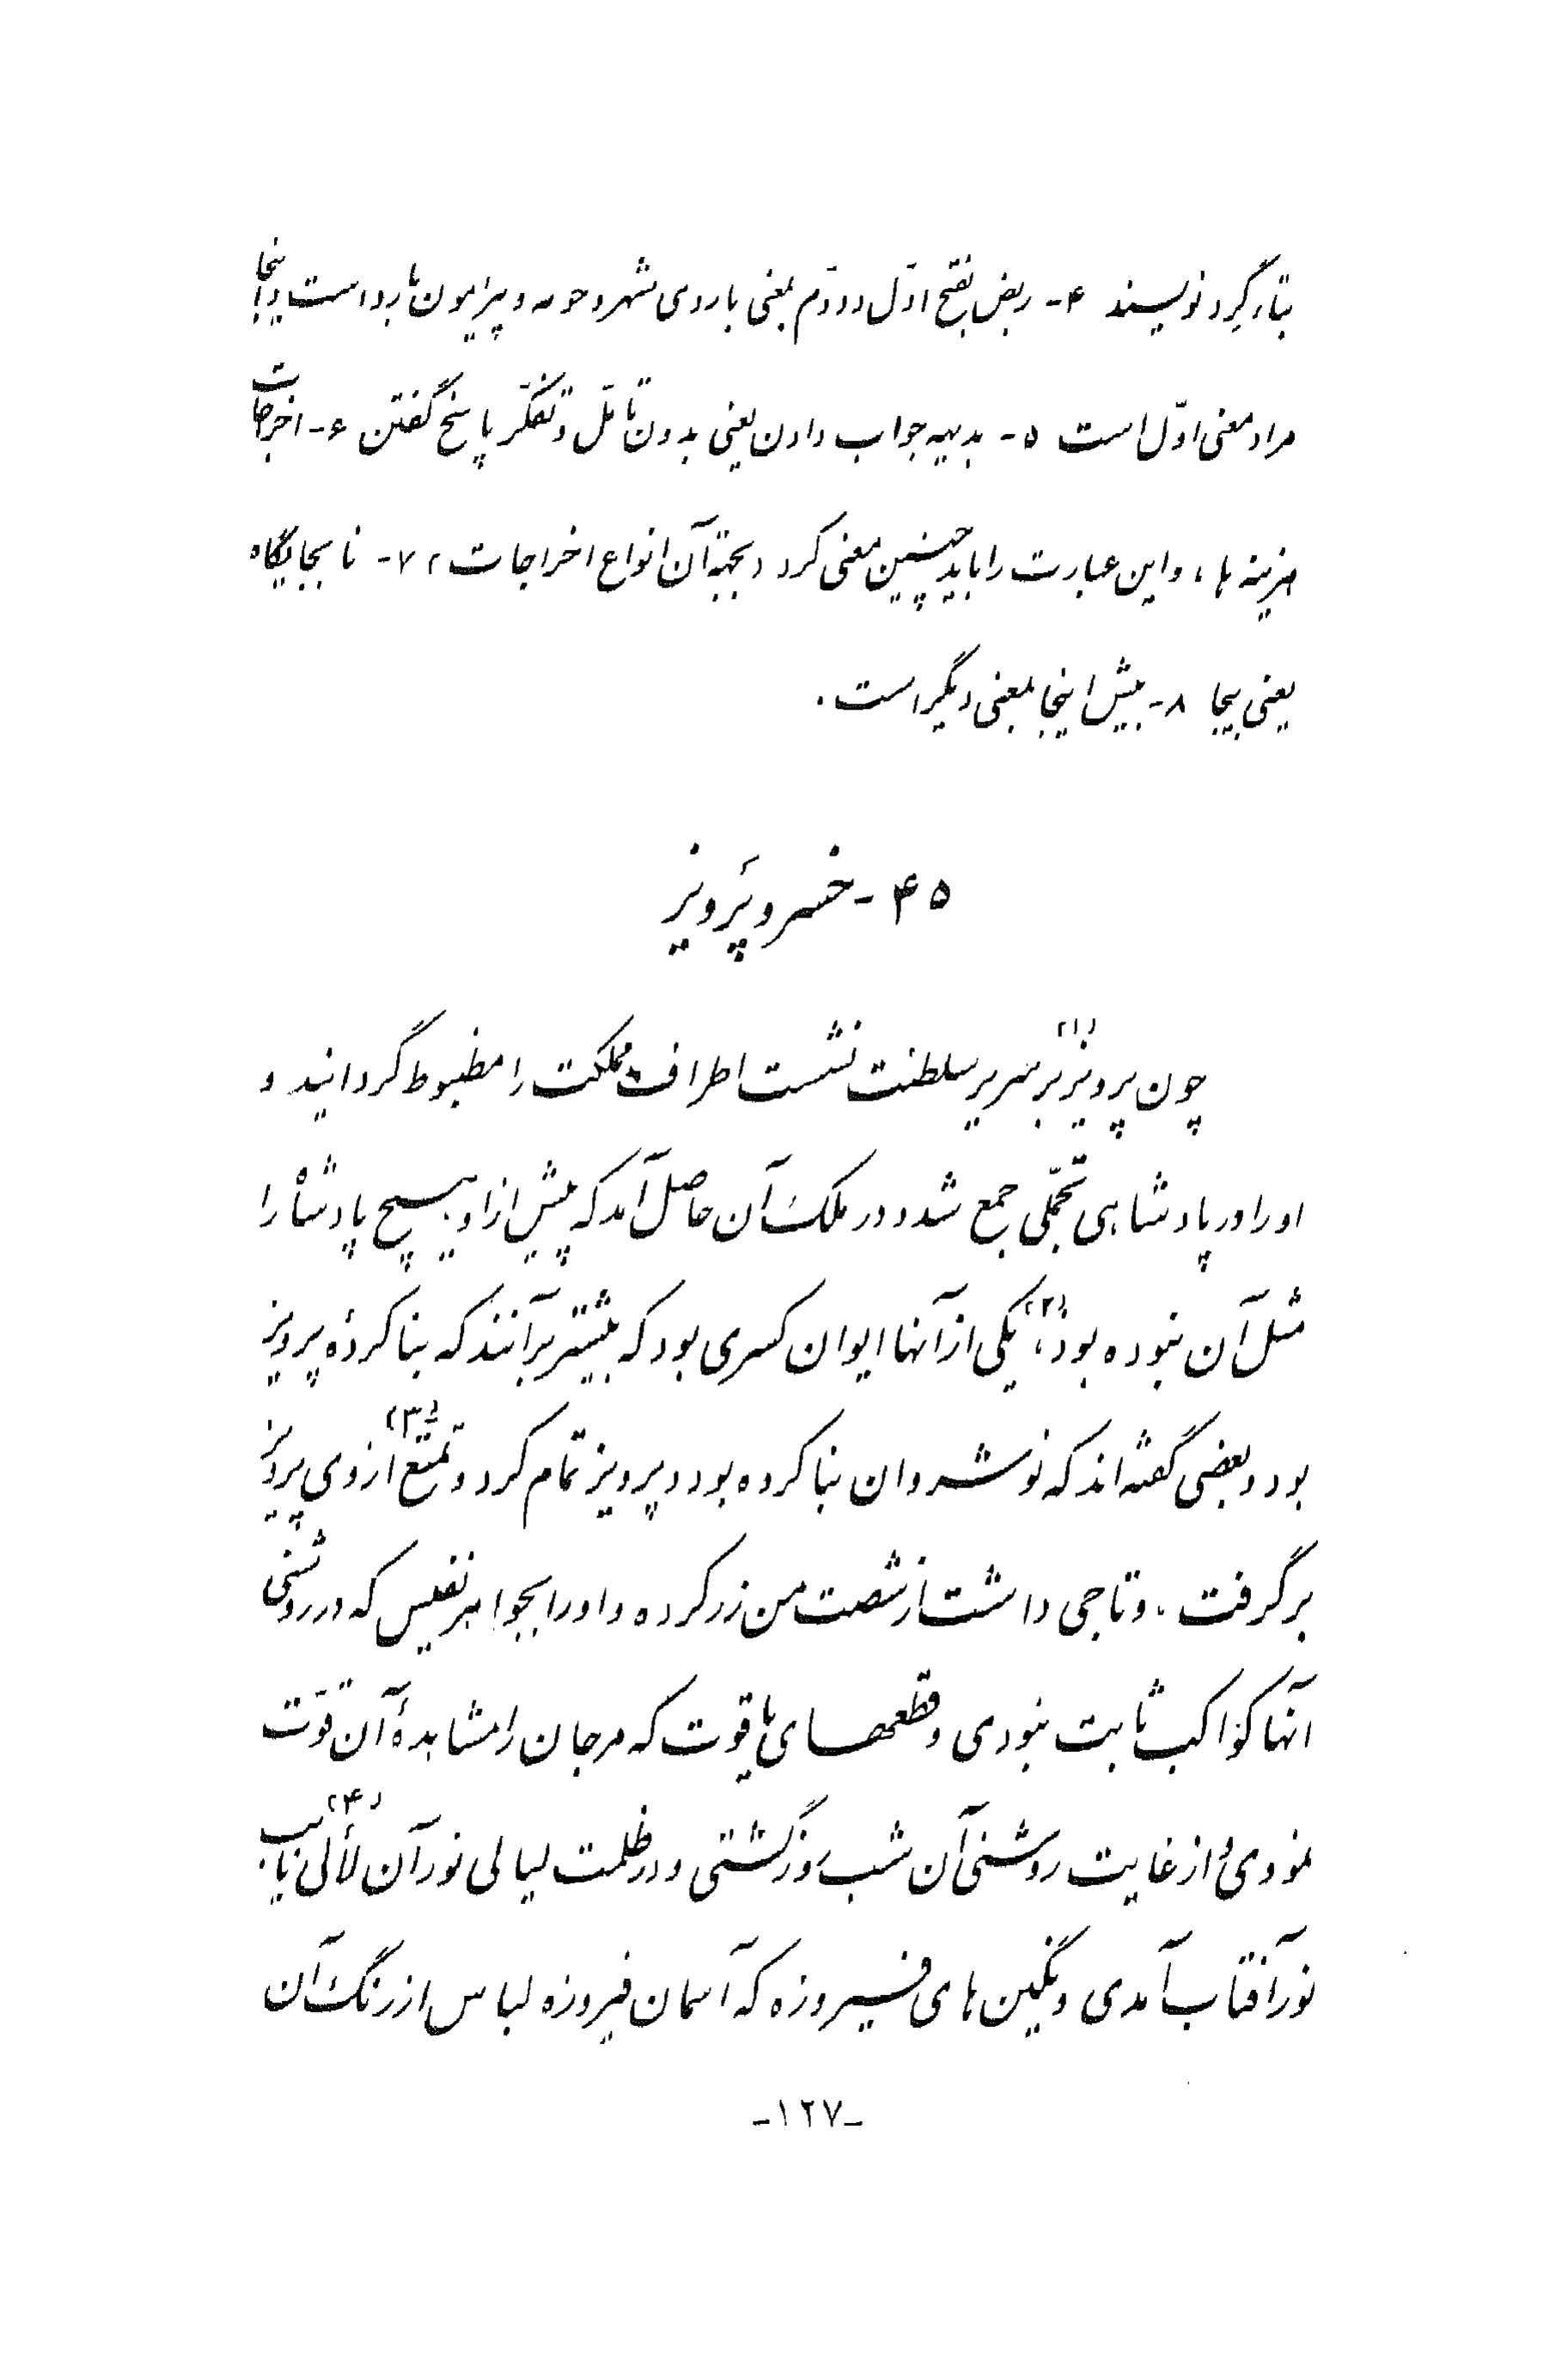 بتاء گرد نویسند ۴- ربض بفتح اوّل و دوّم بمعنی باروی شهر و حومه و پیرامون بارو است و اینجا
مراد معنی اوّل است ۵- بدیهه جواب دادن یعنی بدون تأمّل و تفکّر پاسخ گفتن ۶- اخراجات
هزینه ها، و این عبارت را باید چنین معنی کرد «بجهة آن انواع اخراجات» ۷- نا بجایگاه
یعنی بیجا ۸- بیش اینجا بمعنی دیگر است.
۴۵- خسرو پَرویز
چون پرویز(۱) بر سریر سلطنت نشست اطراف مملکت را مضبوط گردانید و
او را در پادشاهی تجمّلی جمع شد و در ملک آن حاصل آمد که پیش از او هیچ پادشاه را
مثل آن نبوده بود(۲)، یکی از آنها ایوان کسری بود که بیشتر برآنند که بنا کردهٔ پرویز
بود و بعضی گفته اند که نوشروان بنا کرده بود و پرویز تمام کرد و تمتّع(۳) از وی پرویز
برگرفت، و تاجی داشت از شصت من زر کرده و او را بجواهر نفیس که در روشنی
آنها کواکب ثابت نبودی و قطعهای یاقوت که مرجان را مشاهدهٔ آن قوّت
نمودی و از غایت روشنی آن شب روز گشتی و در ظلمت لیالی نور آن لآلی(۴) نایب
نور آفتاب آمدی و نگین های فیروزه که آسمان فیروزه لباس از رنگ آن
-۱۲۷-